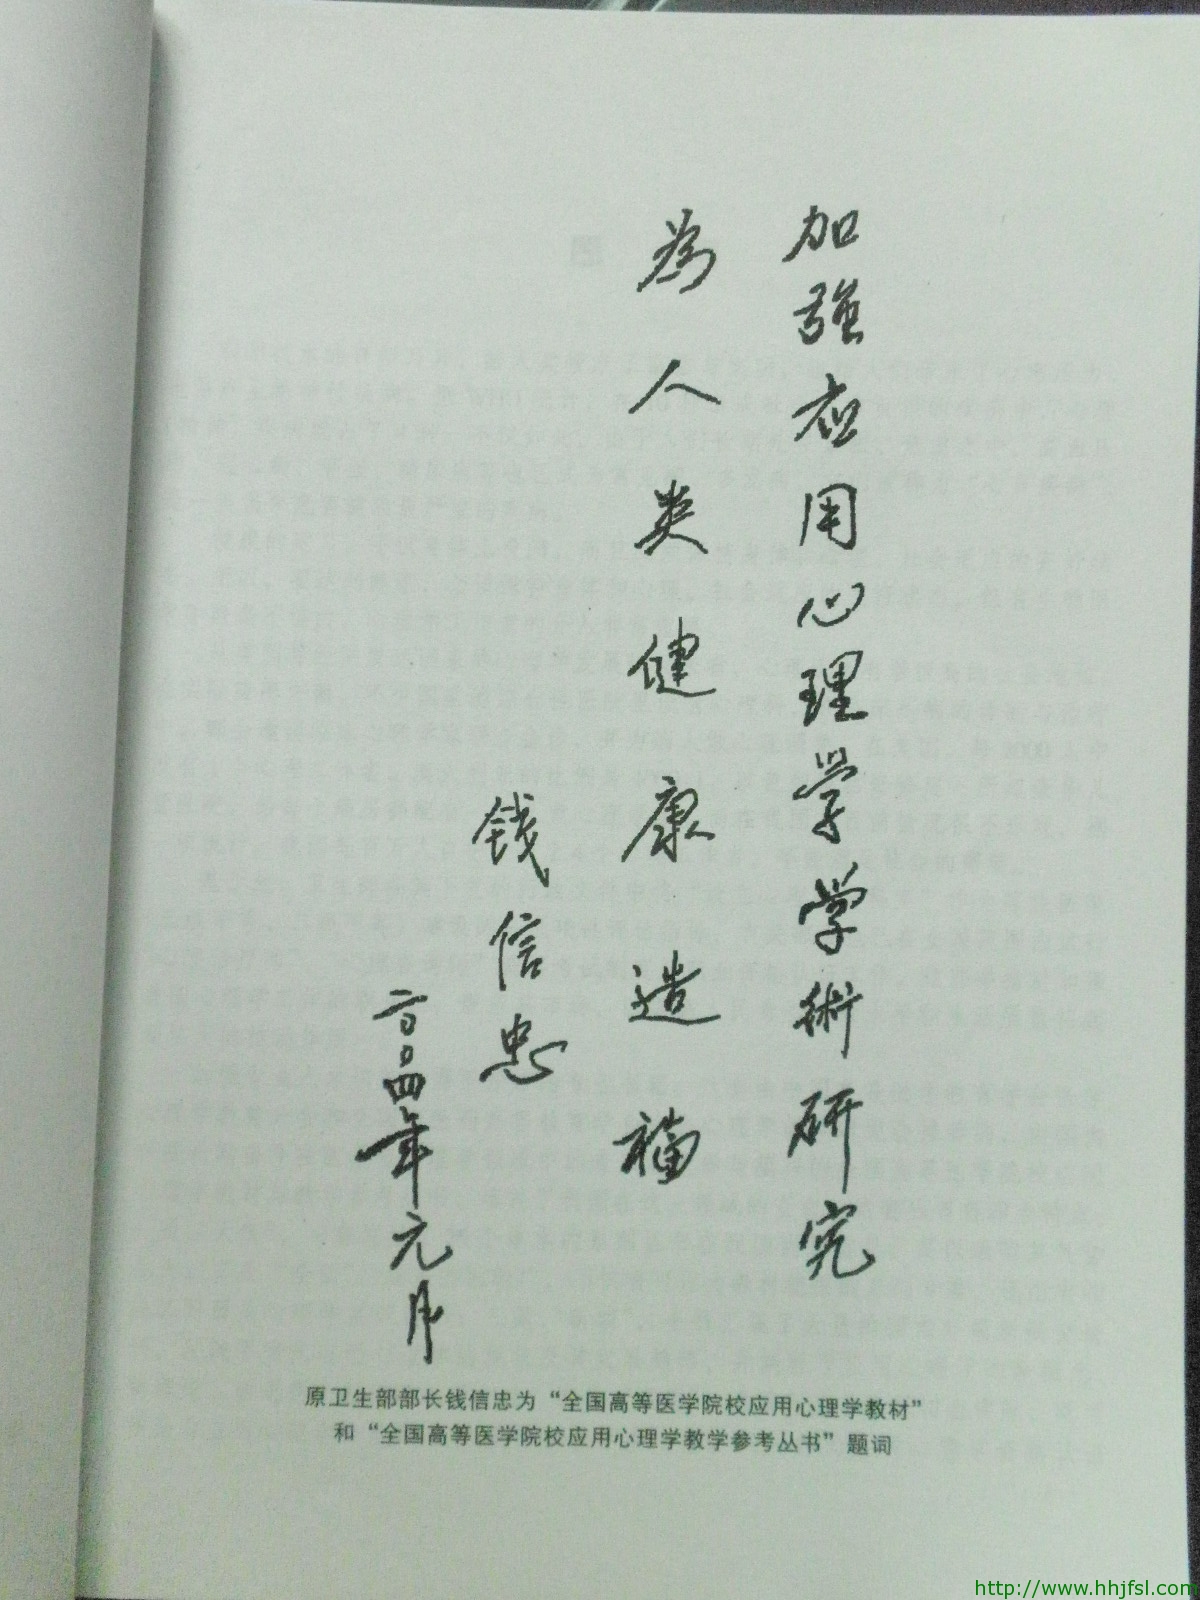 加強应用心理学学術研究
為人类健康造福
钱信忠
二〇〇四年元月
原卫生部部长钱信忠为“全国高等医学院校应用心理学教材”
和“全国高等医学院校应用心理学教学参考丛书”题词
http://www.hhjfsl.com